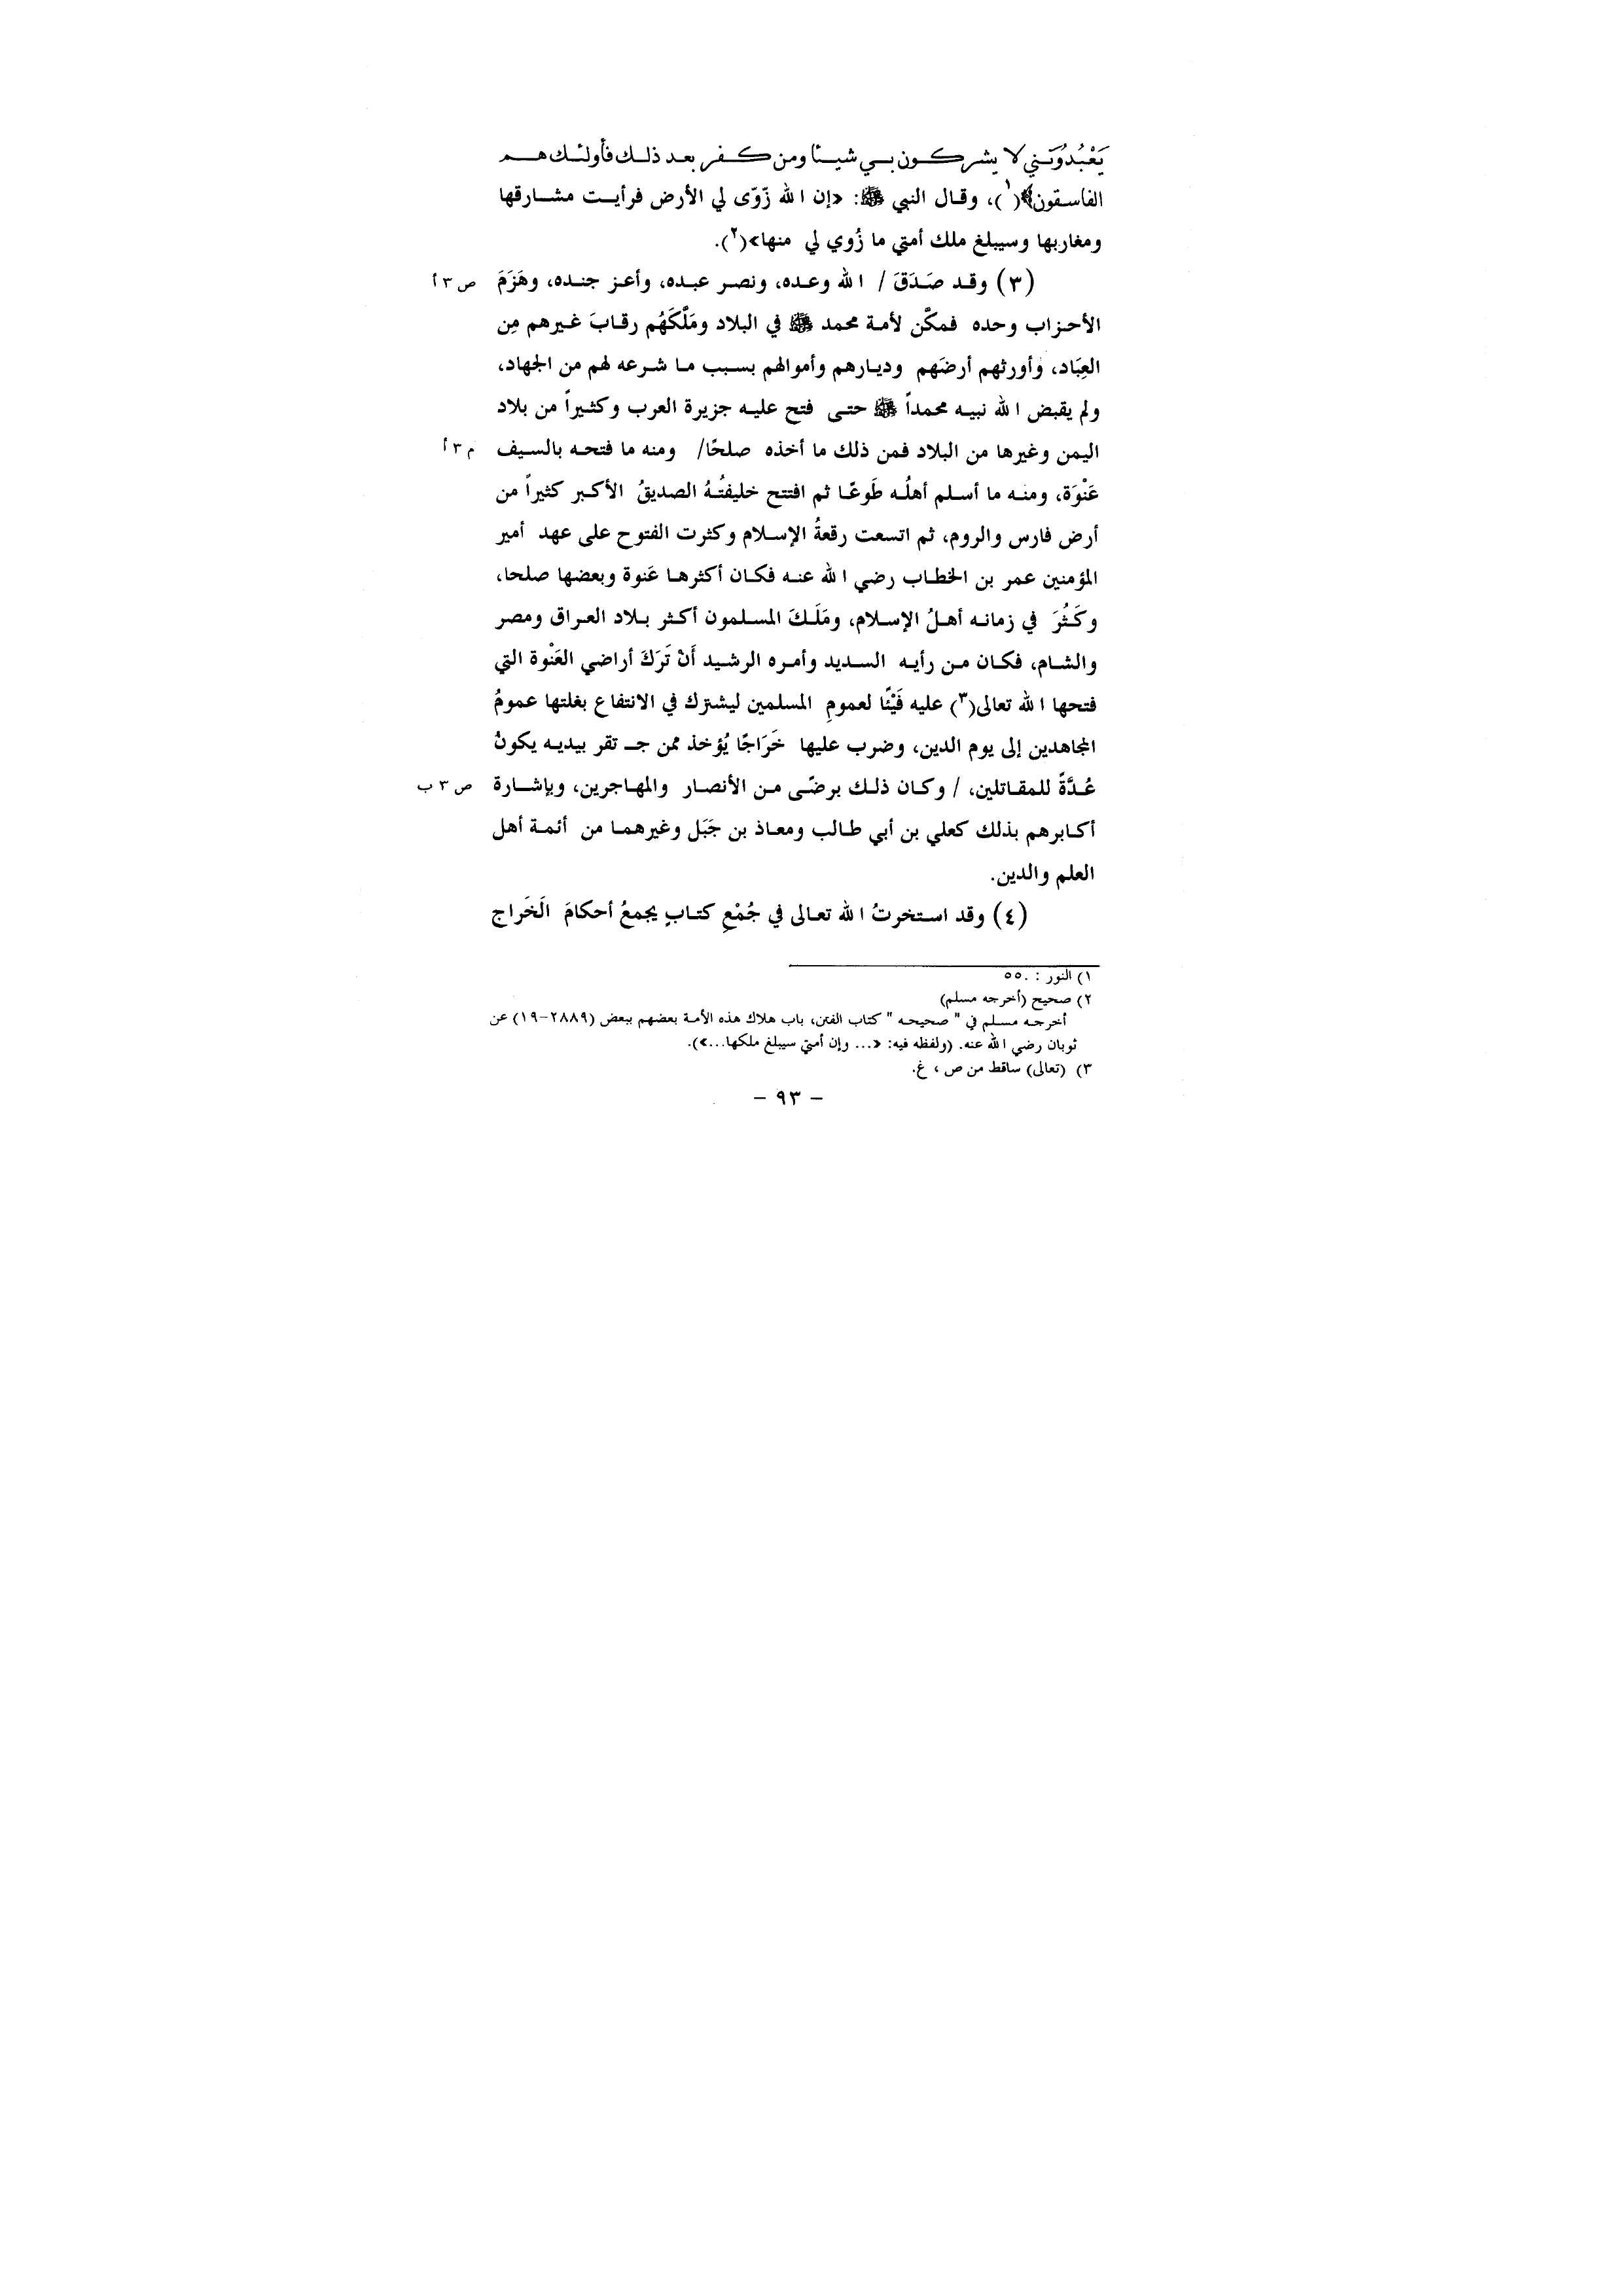 يَعْبُدُوَنَني لا يشركون بي شيئا ومن كفر بعد ذلك فأولئك هم
الفاسقون﴾(١)، وقال النبي ﷺ: «إن الله زَوّى لي الأرض فرأيت مشارقها
ومغاربها وسيبلغ ملك أمتي ما زُوي لي منها»(٢).
(٣) وقد صَدَقَ / الله وعده، ونصر عبده، وأعز جنده، وهَزَمَ ص ٣ أ
الأحزاب وحده فمكّن لأمة محمد ﷺ في البلاد ومَلَّكَهُم رقابَ غيرهم مِن
العِبَاد، وأورثهم أرضَهم وديارهم وأموالهم بسبب ما شرعه لهم من الجهاد،
ولم يقبض الله نبيه محمداً ﷺ حتى فتح عليه جزيرة العرب وكثيراً من بلاد
اليمن وغيرها من البلاد فمن ذلك ما أخذه صلحًا/ ومنه ما فتحه بالسيف م ٣ أ
عَنْوَة، ومنه ما أسلم أهلُه طَوعًا ثم افتتح خليفتُهُ الصديقُ الأكبر كثيراً من
أرض فارس والروم، ثم اتسعت رقعةُ الإسلام وكثرت الفتوح على عهد أمير
المؤمنين عمر بن الخطاب رضي الله عنه فكان أكثرها عَنوة وبعضها صلحا،
وكَثُرَ في زمانه أهلُ الإسلام، ومَلَكَ المسلمون أكثر بلاد العراق ومصر
والشام، فكان من رأيه السديد وأمره الرشيد أَنْ تَرَكَ أراضي العَنْوة التي
فتحها الله تعالى(٣) عليه فَيْئًا لعمومِ المسلمين ليشترك في الانتفاع بغلتها عمومُ
المجاهدين إلى يوم الدين، وضرب عليها خَرَاجًا يُؤخذ ممن جـ تقر بيديه يكونُ
عُدَّةً للمقاتلين، / وكان ذلك برضًى من الأنصار والمهاجرين، وبإشارة ص ٣ ب
أكابرهم بذلك كعلي بن أبي طالب ومعاذ بن جَبَل وغيرهما من أئمة أهل
العلم والدين.
(٤) وقد استخرتُ الله تعالى في جُمْعِ كتابٍ يجمعُ أحكامَ الَخَراج
١) النور : ٥٥.
٢) صحيح (أخرجه مسلم)
أخرجه مسلم في " صحيحه " كتاب الفتن، باب هلاك هذه الأمة بعضهم ببعض (٢٨٨٩-١٩) عن
ثوبان رضي الله عنه. (ولفظه فيه: «... وإن أمتي سيبلغ ملكها...»).
٣) (تعالى) ساقط من ص ، غ.
- ٩٣ -